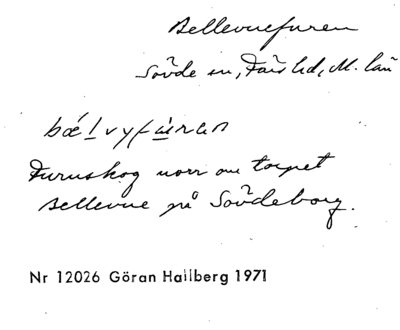 Bellevuefuren
Sövde sn, Färs hd, M. län
bæ´lvyfu`ran
Furuskog norr om torpet
Bellevue på Sövdeborg.
Nr 12026 Göran Hallberg 1971